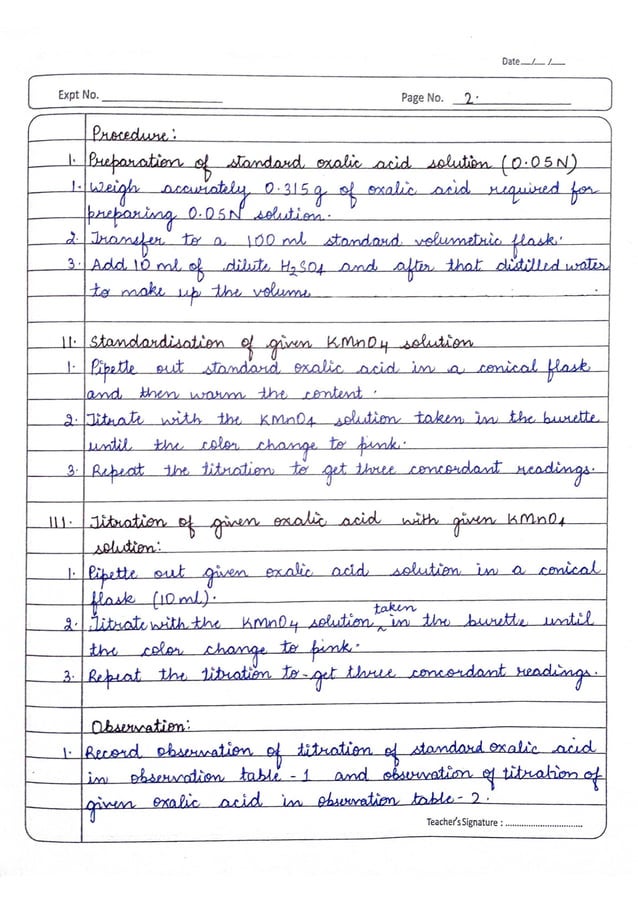 Date __/__ /__
Expt No. Page No. 2.
Procedure:
1. Preparation of standard oxalic acid solution (0.05N)
1. Weigh accurately 0.315g of oxalic acid required for
preparing 0.05N solution.
2. Transfer to a 100 ml standard volumetric flask.
3. Add 10 ml of dilute H2SO4 and after that distilled water
to make up the volume
II. Standardisation of given KMnO4 solution
1. Pipette out standard oxalic acid in a conical flask
and then warm the content.
2. Titrate with the KMnO4 solution taken in the burette
until the color change to pink.
3. Repeat the titration to get three concordant readings.
III. Titration of given oxalic acid with given KMnO4
solution:
1. Pipette out given oxalic acid solution in a conical
flask (10 ml).
2. Titrate with the KMnO4 solution taken in the burette until
the color change to pink.
3. Repeat the titration to get three concordant readings.
Observation:
1. Record observation of titration of standard oxalic acid
in observation table - 1 and observation of titration of
given oxalic acid in observation table - 2.
Teacher's Signature : ................................